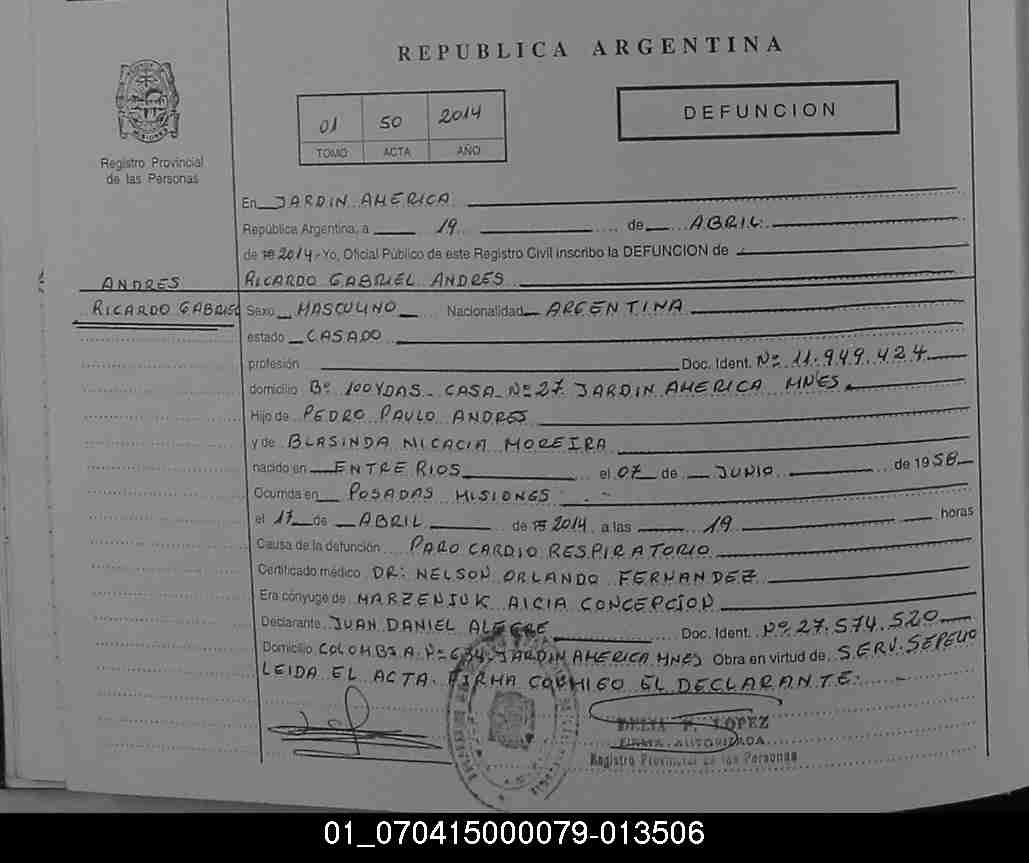 REPUBLICA ARGENTINA
Registro Provincial
de las Personas
01 50 2014
TOMO ACTA AÑO
DEFUNCION
En JARDIN AMERICA
República Argentina, a 19 de ABRIL
de 2014. Yo, Oficial Público de este Registro Civil inscribo la DEFUNCION de
ANDRES
RICARDO GABRIEL
RICARDO GABRIEL ANDRES
Sexo MASCULINO Nacionalidad ARGENTINA
estado CASADO
profesión Doc. Ident. Nº 11.949.424
domicilio Bº 100 VDAS - CASA Nº 27 JARDIN AMERICA MNES
Hijo de PEDRO PAULO ANDRES
y de BLASINDA NICACIA MOREIRA
nacido en ENTRE RIOS el 07 de JUNIO de 1958
Ocurrida en POSADAS MISIONES
el 17 de ABRIL de 2014 a las 19 horas
Causa de la defunción PARO CARDIO RESPIRATORIO
Certificado médico DR: NELSON ORLANDO FERNANDEZ
Era cónyuge de MARZENIUK AICIA CONCEPCION
Declarante JUAN DANIEL ALEGRE Doc. Ident. Nº 27.574.520
Domicilio COLOMBIA Nº 634 JARDIN AMERICA MNES Obra en virtud de SERV. SEPELIO
LEIDA EL ACTA FIRMA CONMIGO EL DECLARANTE:
DELIA F. LOPEZ
FIRMA AUTORIZADA
Registro Provincial de las Personas
01_070415000079-013506